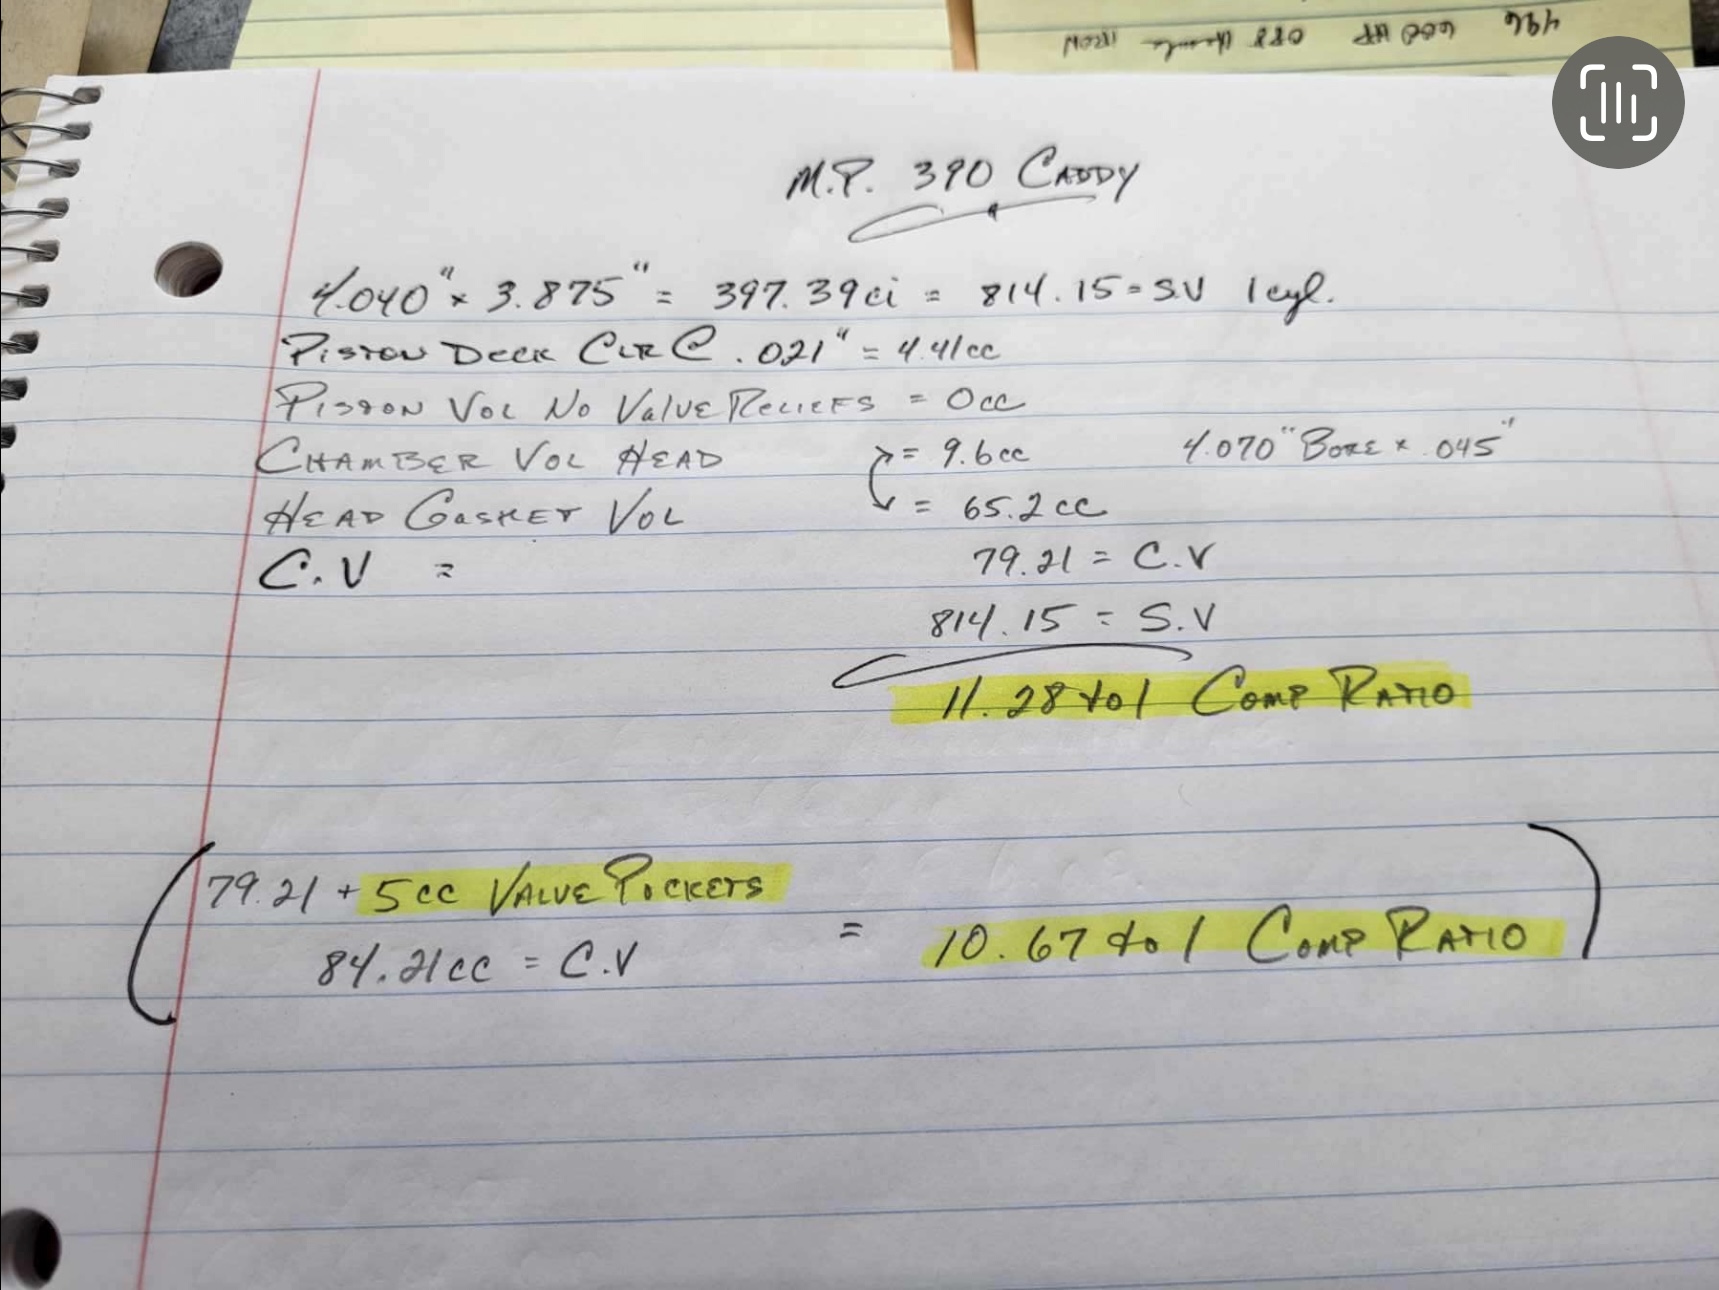 496 600 HP 088 IRON
M.P. 390 CADDY
4.040" x 3.875" = 397.39ci = 814.15 = S.V 1 cyl.
PISTON DECK CLR @ .021" = 4.41cc
PISTON VOL NO VALVE RELIEFS = 0cc
CHAMBER VOL HEAD = 9.6cc 4.070" BORE x .045"
HEAD GASKET VOL = 65.2cc
C.V = 79.21 = C.V
814.15 = S.V
11.28 to 1 COMP RATIO
79.21 + 5cc VALVE POCKETS
84.21cc = C.V = 10.67 to 1 COMP RATIO